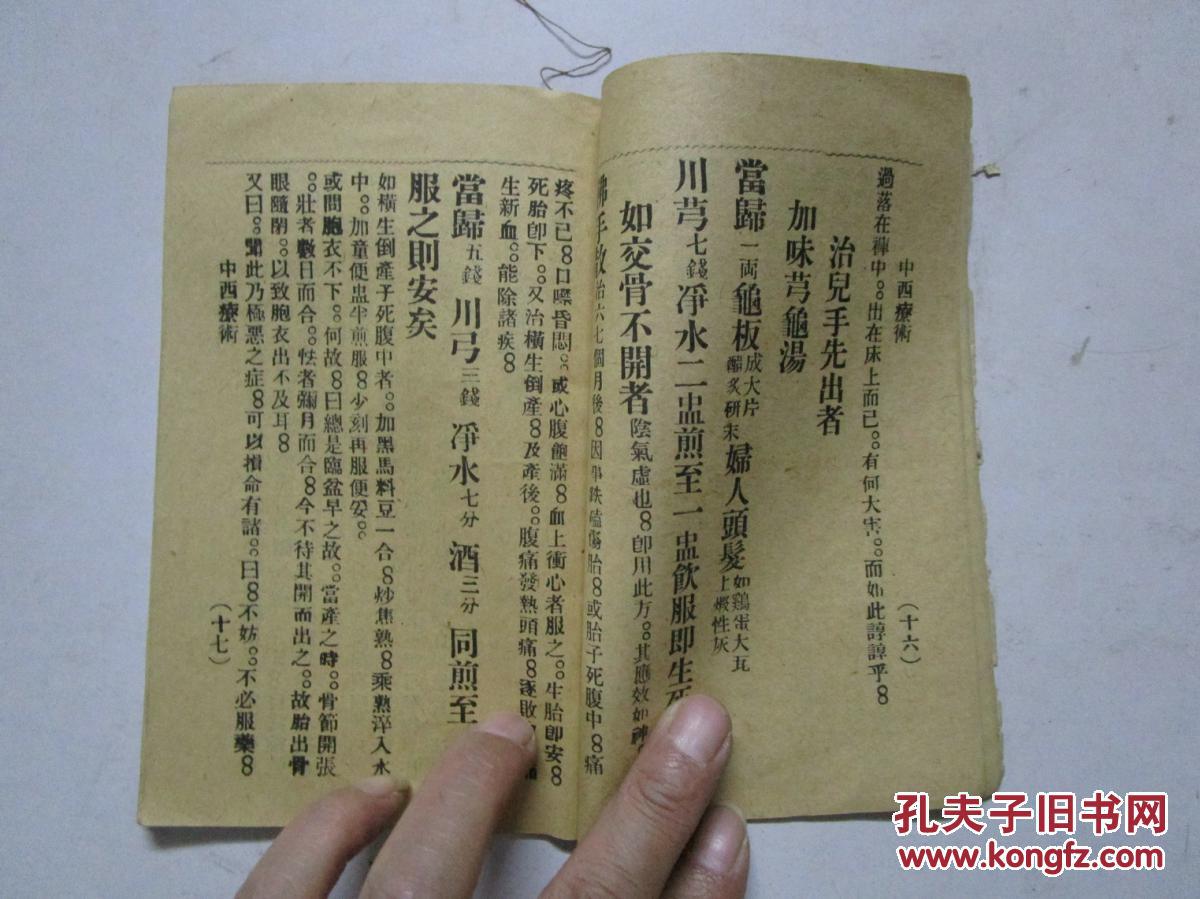 中西療術
(十六)
過落在褲中。。出在床上而已。。有何大害。。而如此諄諄乎8
治兒手先出者
加味芎龜湯
當歸一両 龜板成大片醋炙研末 婦人頭髮如鶏蛋大瓦上煅性灰
川芎七錢 凈水二盅煎至一盅飲服即生
如交骨不開者陰氣虛也8即用此方。。其應效如神
佛手散治六七個月後8因事跌磕傷胎8或胎子死腹中8痛
疼不已8口噤昏悶。。或心腹飽滿8血上衝心者服之。。生胎即安8
死胎即下。。又治橫生倒產8及產後。。腹痛發熱頭痛8逐敗
生新血。。能除諸疾8
當歸五錢 川弓三錢 凈水七分 酒三分 同煎至
服之則安矣
如橫生倒產子死腹中者。。加黑馬料豆一合8炒焦熟8乘熟淬入水
中。。加童便盅半煎服8少刻再服便妥。。
或問胞衣不下。。何故8曰總是臨盆早之故。。當產之時。。骨節開張
。。壯者數日而合。。怯者彌月而合8今不待其開而出之。。故胎出骨
眼隨閉。。以致胞衣出不及耳8
又曰。。聞此乃極惡之症8可以損命有諸。。曰8不妨。。不必服藥8
中西療術
(十七)
孔夫子旧书网
www.kongfz.com